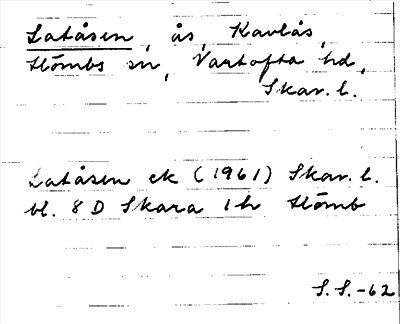 Latåsen, ås, Kavlås,
Hömbs sn, Vartofta hd,
Skar. l.
Latåsen ek (1961) Skar. l.
bl. 8 D Skara 1h Hömb
S.S.-62